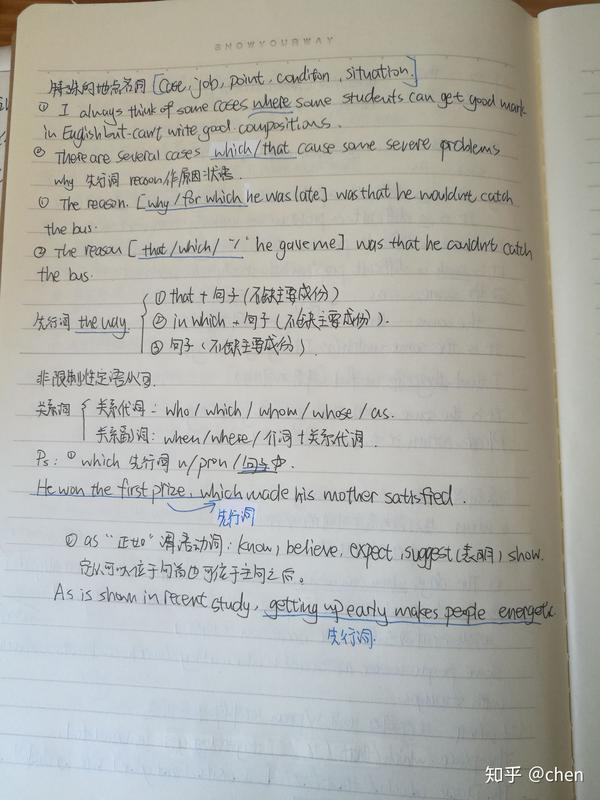 SHOWYOURWAY
特殊的地点名词 [case, job, point, condition, situation.]
① I always think of some cases where some students can get good mark
in English but can't write good compositions.
② There are several cases which/that cause some severe problems
why 先行词 reason 作原因状语.
① The reason. [why/for which he was late] was that he wouldn't catch
the bus.
② The reason [that/which/ \ he gave me] was that he couldn't catch
the bus.
① that + 句子 (不缺主要成份)
先行词 the way. ② in which + 句子 (不缺主要成份).
③ 句子 (不缺主要成份).
非限制性定语从句.
关系词 关系代词: who/which/whom/whose/as.
关系副词: when/where/介词+关系代词.
Ps: ① which 先行词 n/pron/句子中.
He won the first prize, which made his mother satisfied.
先行词
② as "正如" 谓语动词: know, believe, expect, suggest (表明), show.
定从可以位于句首也可位于主句之后。
As is shown in recent study, getting up early makes people energetic
先行词.
知乎 @chen